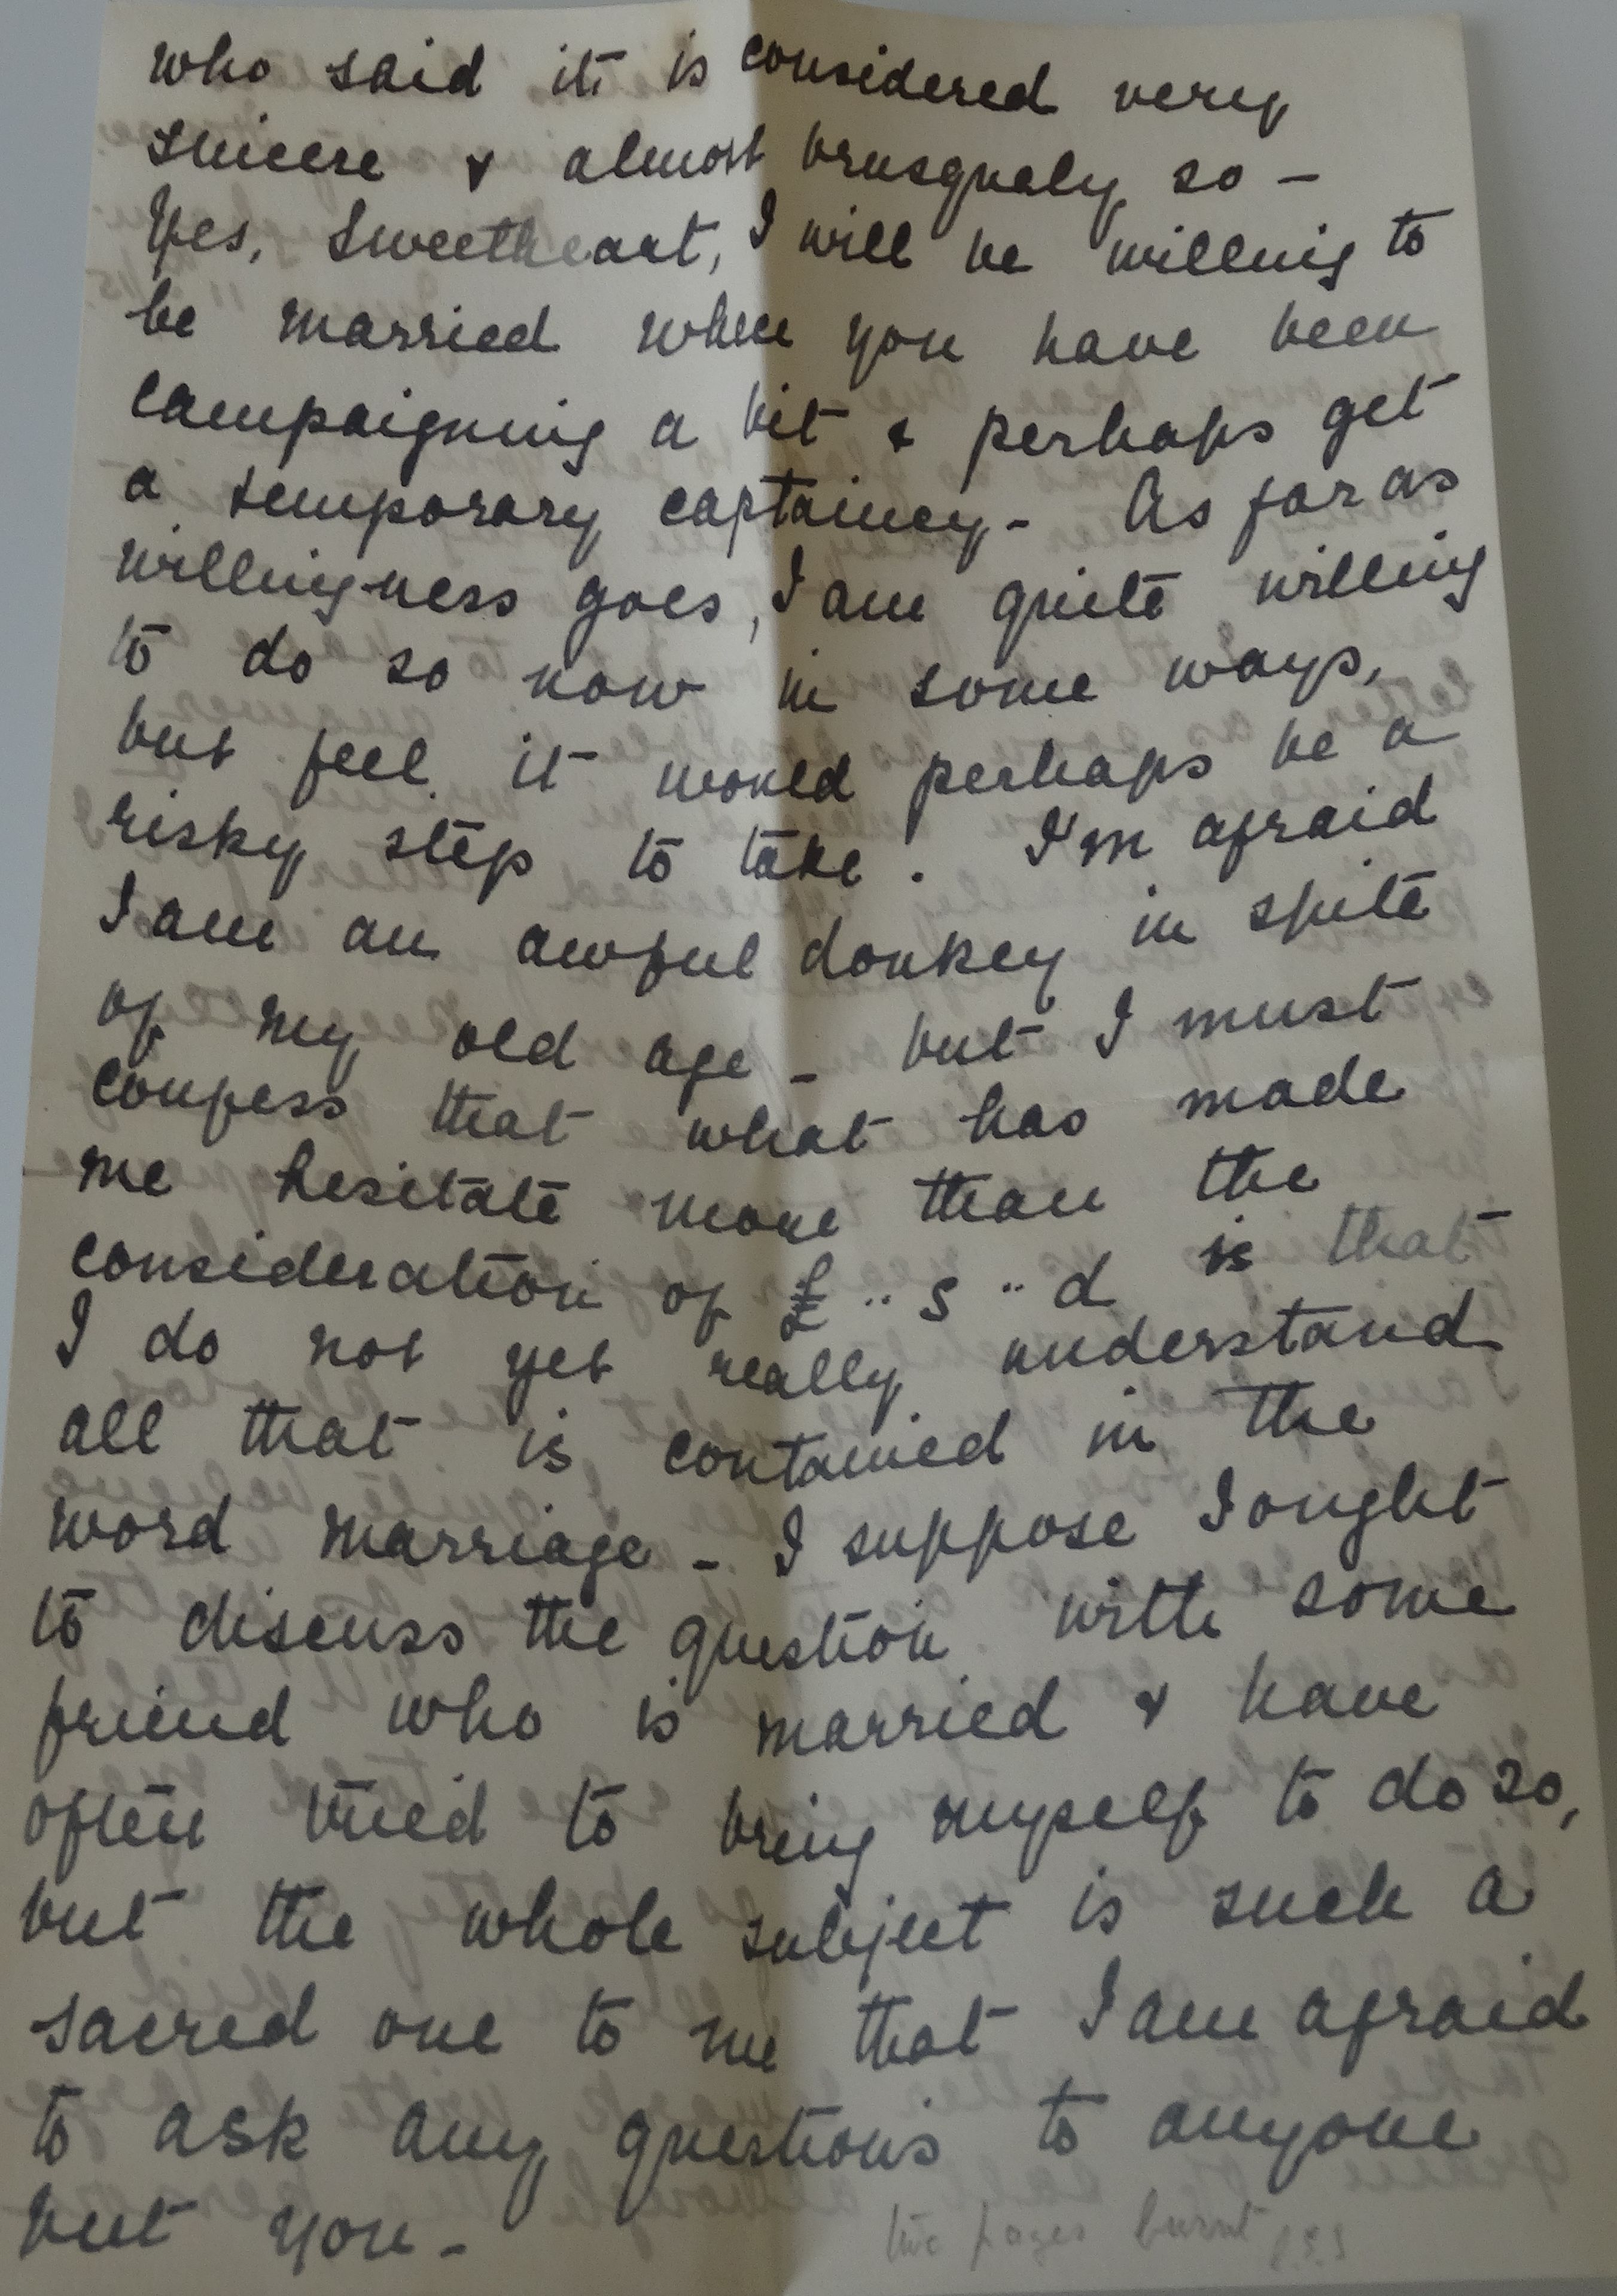 who said it is considered very
sincere & almost brusquely so -
Yes, Sweetheart, I will be willing to
be married when you have been
campaigning a bit & perhaps get
a temporary captaincy - As far as
willingness goes, I am quite willing
to do so now in some ways,
but feel it would perhaps be a
risky step to take. I'm afraid
I am an awful donkey in spite
of my old age - but I must
confess that what has made
me hesitate more than the
consideration of £ .. s .. d is that
I do not yet really understand
all that is contained in the
word marriage - I suppose I ought
to discuss the question with some
friend who is married & have
often tried to bring myself to do so,
but the whole subject is such a
sacred one to me that I am afraid
to ask any questions to anyone
but you -
two pages burnt